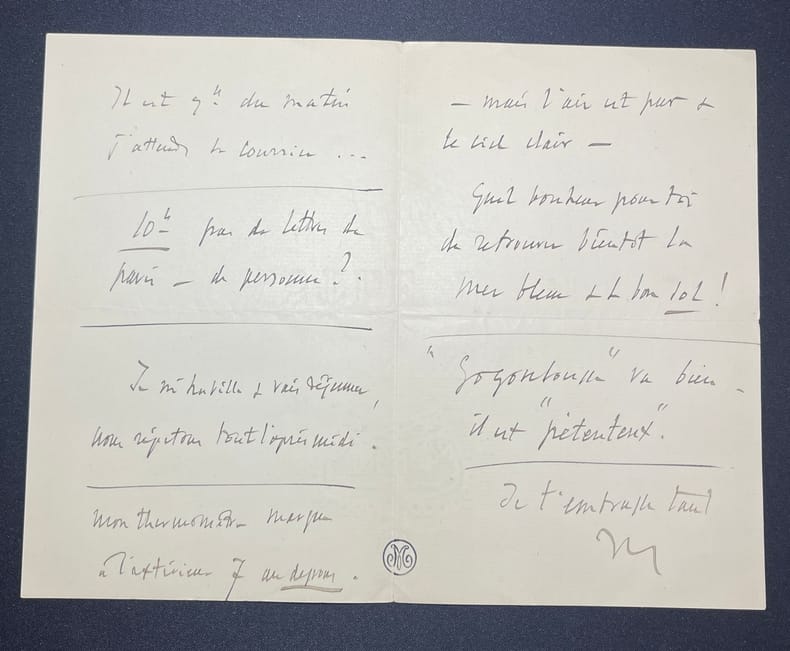 Il est 9h du matin
j'attends le courrier ...
10h pas de lettres de
paris – de personne ?.
Je m'habille & vais déjeuner,
nous répétons tout l'après midi.
mon thermomètre marque
à l'extérieur 7 au dessous.
– mais l'air est pur &
le ciel clair –
Quel bonheur pour toi
de retrouver bientôt la
mer bleue & le bon sol !
" va bien –
il est "pétenteux".
Je t'embrasse tant
M
M